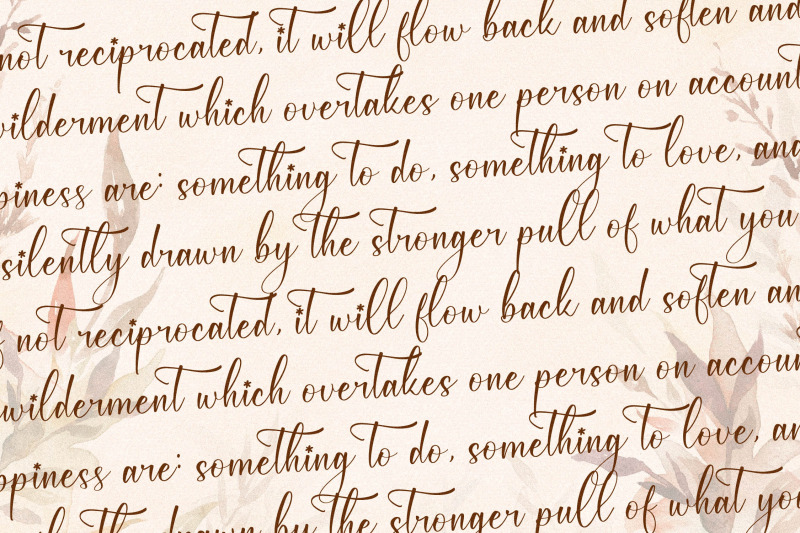 not reciprocated, it will flow back and soften and
wilderment which overtakes one person on account
piness are: something to do, something to love, and
silently drawn by the stronger pull of what you
f not reciprocated, it will flow back and soften an
wilderment which overtakes one person on accoun
ppiness are: something to do, something to love, an
drawn by the stronger pull of what you